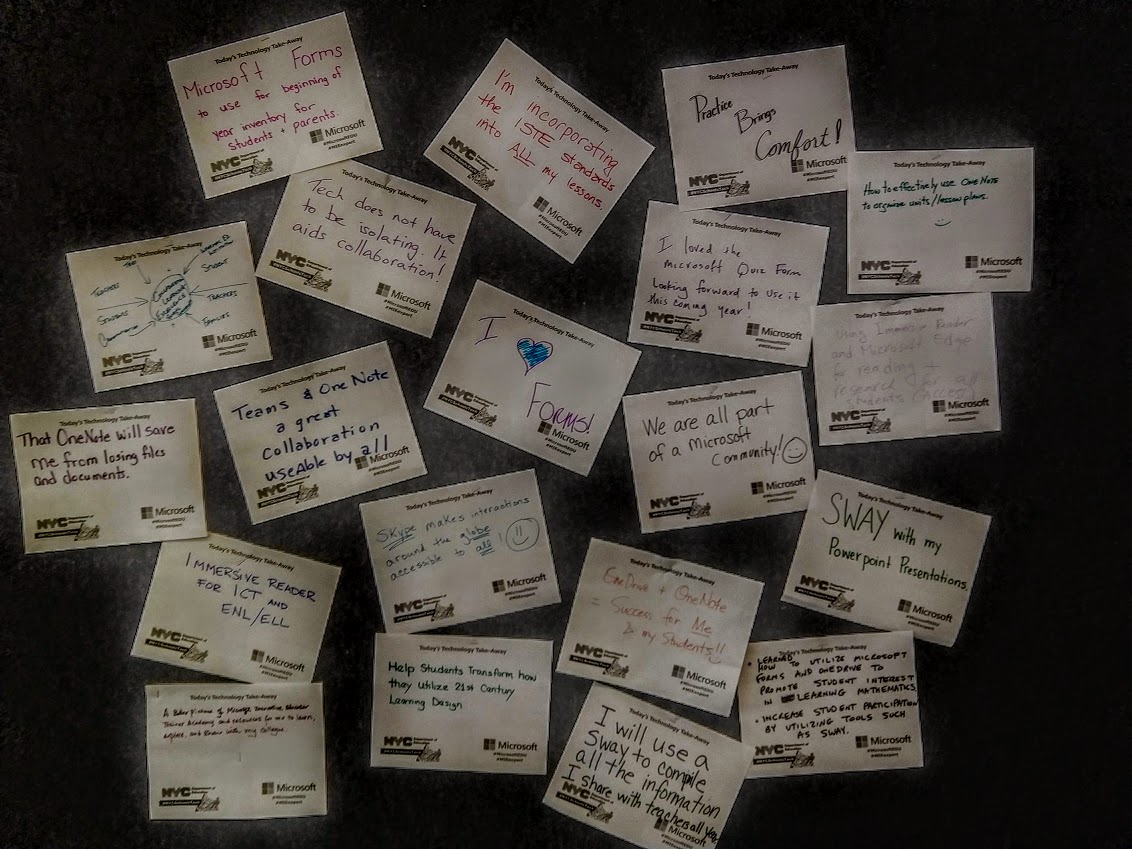 Today's Technology Take-Away
Microsoft Forms
to use for beginning of
year inventory for
students + parents.
NYC Department of Education
Microsoft
#MicrosoftEDU
#MIEexpert
Today's Technology Take-Away
I'm incorporating
the ISTE standards
into ALL my lessons.
NYC
Microsoft
#MicrosoftEDU
#MIEexpert
Today's Technology Take-Away
Practice
Brings
Comfort!
NYC
Microsoft
#MicrosoftEDU
#MIEexpert
Today's Technology Take-Away
How to effectively use OneNote
to organize units/lesson plans.
NYC
Microsoft
#MicrosoftEDU
#MIEexpert
Today's Technology Take-Away
Tech does not have
to be isolating. It
aids collaboration!
NYC
Microsoft
#MicrosoftEDU
#MIEexpert
Today's Technology Take-Away
I loved the
Microsoft Quiz Form
Looking forward to use it
this coming year!
NYC
Microsoft
#MicrosoftEDU
#MIEexpert
Today's Technology Take-Away
Teachers
Students
Student
Teachers
Families
NYC
Microsoft
#MicrosoftEDU
#MIEexpert
Today's Technology Take-Away
I
Forms!
NYC
Microsoft
#MicrosoftEDU
#MIEexpert
Using Immersive Reader
and Microsoft Edge
for reading +
research for all
students
NYC
Microsoft
#MicrosoftEDU
#MIEexpert
Today's Technology Take-Away
Teams & One Note
a great
collaboration
useAble by all
NYC
Microsoft
#MicrosoftEDU
#MIEexpert
Today's Technology Take-Away
We are all part
of a Microsoft
Community!
NYC Department of Education
Microsoft
#MicrosoftEDU
#MIEexpert
Today's Technology Take-Away
That OneNote will save
me from losing files
and documents.
NYC Department of Education
Microsoft
#MicrosoftEDU
#MIEexpert
Today's Technology Take-Away
Skype makes interactions
around the globe
accessible to all!
NYC
Microsoft
#MicrosoftEDU
#MIEexpert
Today's Technology Take-Away
SWAY with my
Powerpoint Presentations.
NYC
Microsoft
#MicrosoftEDU
#MIEexpert
Today's Technology Take-Away
Immersive Reader
for ICT and
ENL/ELL
NYC
Microsoft
#MicrosoftEDU
#MIEexpert
Today's Technology Take-Away
OneDrive + OneNote
= Success for Me
& my Students!!
NYC
Microsoft
#MicrosoftEDU
#MIEexpert
Today's Technology Take-Away
Help Students Transform how
they Utilize 21st Century
Learning Design
NYC Department of Education
Microsoft
#MicrosoftEDU
#MIEexpert
Today's Technology Take-Away
• Learned
how to utilize Microsoft
Forms and OneDrive to
promote student interest
in learning mathematics
• Increase student participation
by utilizing tools such
as Sway.
NYC
Microsoft
#MicrosoftEDU
#MIEexpert
Today's Technology Take-Away
Trainer Academy and resources for me to learn,
explore, and share with my
NYC Department of Education
Microsoft
#MicrosoftEDU
#MIEexpert
Today's Technology Take-Away
I will use a
Sway to compile
all the information
I share with teachers all year.
NYC
Microsoft
#MicrosoftEDU
#MIEexpert